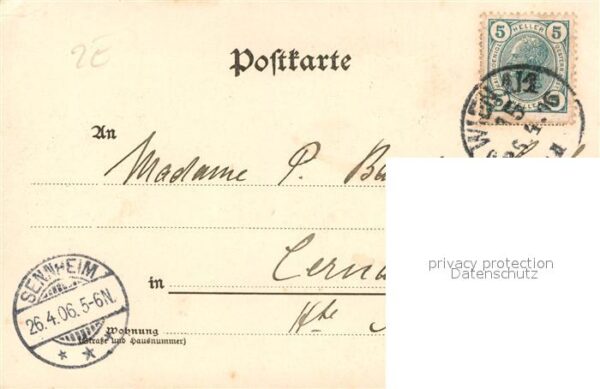 2E
Postkarte
5 HELLER 5
WIEN 1/1
An
Madame P.
in Cerna
Hte
Wohnung
(Straße und Hausnummer)
SENNHEIM
26.4.06.5-6N.
privacy protection
Datenschutz